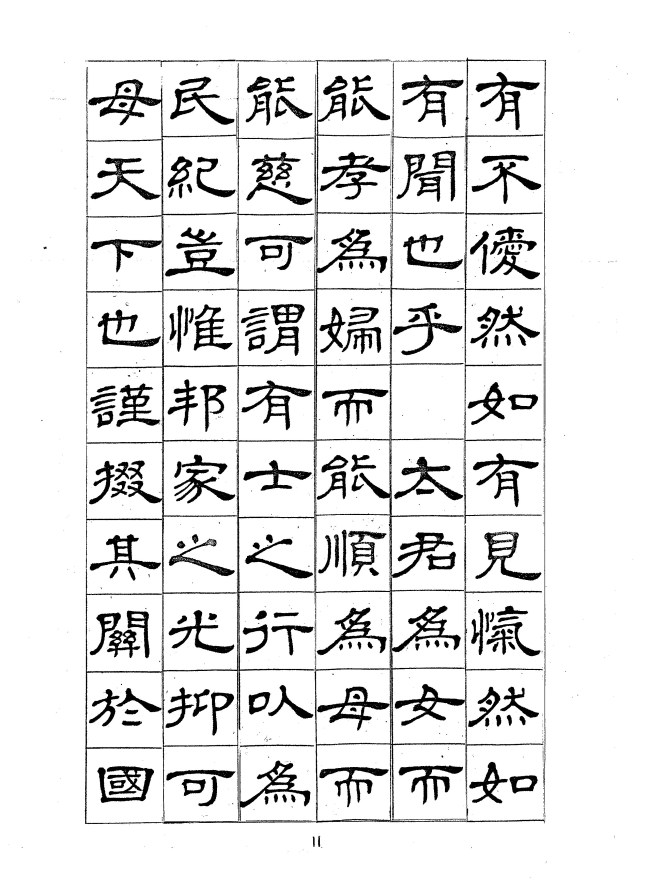 有不僾然如有見愾然如
有聞也乎 太君為女而
能孝為婦而能順為母而
能慈可謂有士之行以為
民紀豈惟邦家之光抑可
母天下也謹掇其關於國
11